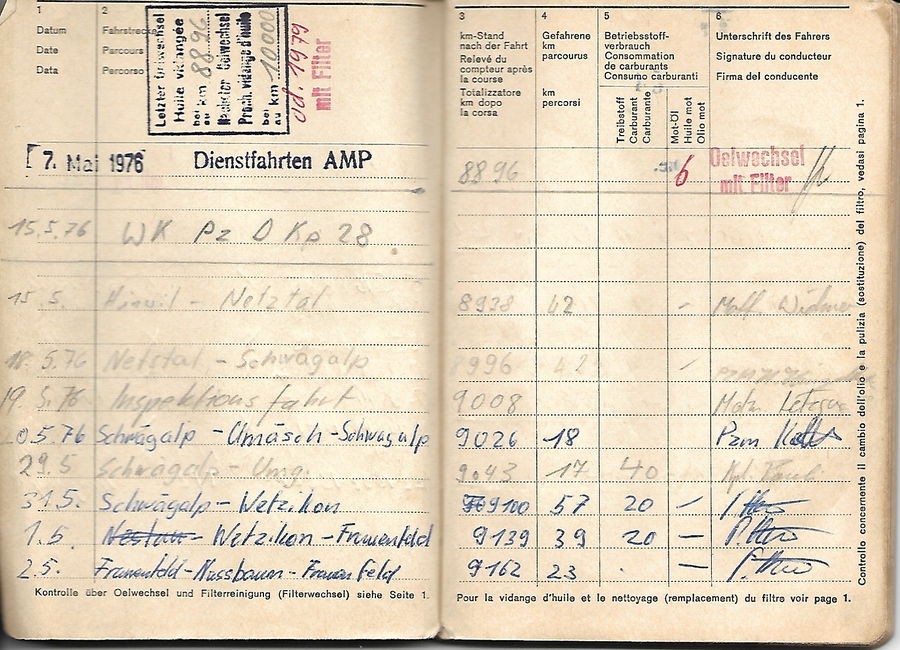 1
Datum
Date
Data
2
Fahrstrecke
Parcours
Percorso
Letzter Oelwechsel
Huile vidangée
bei km 8896
au
Nächster Oelwechsel
Proch. vidange d'huile
bei km 10000
au
od. 1979
mit Filter
7. Mai 1976 Dienstfahrten AMP
15.5.76 WK Pz D Kp 28
15.5. Hinwil - Netztal
18.5.76 Netstal - Schwägalp
19.5.76 Inspektionsfahrt
0.5.76 Schwägalp - Urnäsch - Schwägalp
29.5 Schwägalp - Umg.
31.5. Schwägalp - Wetzikon
1.5. Nestal - Wetzikon - Frauenfeld
2.5. Frauenfeld - Nussbaum - Frauenfeld
Kontrolle über Oelwechsel und Filterreinigung (Filterwechsel) siehe Seite 1.
3
km-Stand
nach der Fahrt
Relevé du
compteur après
la course
Totalizzatore
km dopo
la corsa
4
Gefahrene
km
km
parcourus
km
percorsi
5
Betriebsstoff-
verbrauch
Consommation
de carburants
Consumo carburanti
Treibstoff
Carburant
Carburante
Mot-Öl
Huile mot
Olio mot
6
Unterschrift des Fahrers
Signature du conducteur
Firma del conducente
8896 6 Oelwechsel
mit Filter
8938 42 - Widmer
8996 42 -
9008
9026 18 Pzm
9043 17 40
9100 57 20 -
9139 39 20 -
9162 23 . -
Pour la vidange d'huile et le nettoyage (remplacement) du filtre voir page 1.
Controllo concernente il cambio dell'olio e la pulizia (sostituzione) del filtro, vedasi pagina 1.